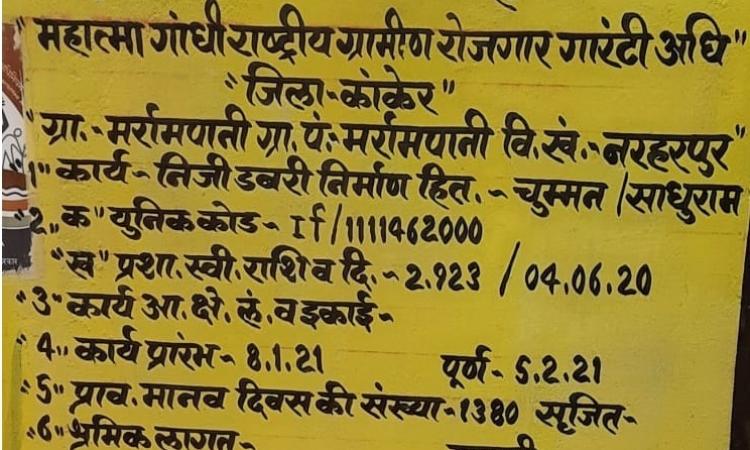 "महात्मा गांधी राष्ट्रीय ग्रामीण रोजगार गारंटी अधि"
"जिला-कांकेर"
"ग्रा.- मर्रामपानी ग्रा.पं:- मर्रामपानी वि.खं.- नरहरपुर"
"1" कार्य - निजी डबरी निर्माण हित. - चुम्मन / साधुराम
"2,, क" युनिक कोड - If/1111462000
"ख" प्रशा. स्वी. राशि व दि. - 2.923 / 04.06.20
"3" कार्य आ. क्षे. लं. व इकाई -
"4,, कार्य प्रारंभ - 8.1.21 पूर्ण - 5.2.21
"5" प्राव. मानव दिवस की संख्या - 1380 सृजित -
"6" श्रमिक लागत -